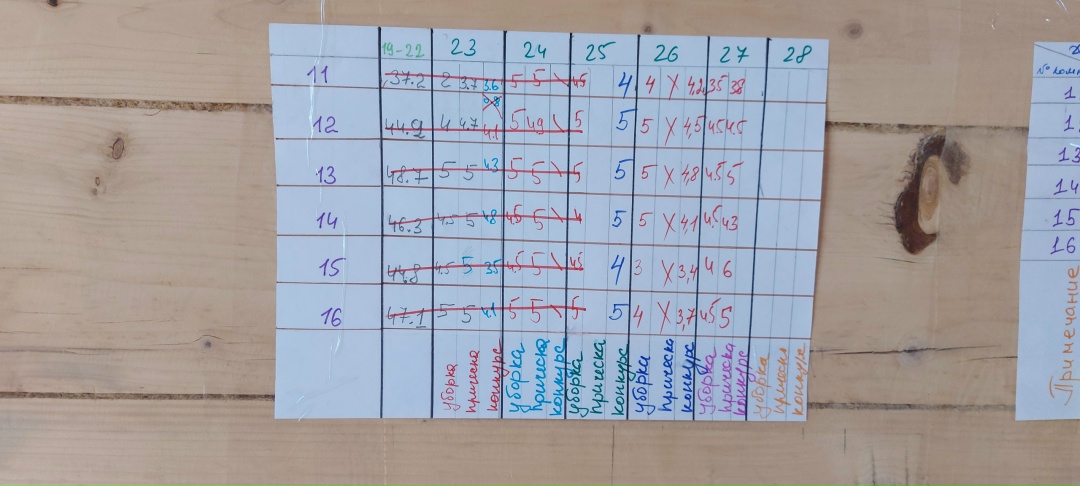 19-22 23 24 25 26 27 28
11 37.2 2 3.7 3.6 5 5 \ 4.5 4 4 X 4,2 3.5 3.8
0.8
12 44.9 4 4.7 4.1 5 4.9 \ 5 5 5 X 4,5 4.5 4.5
13 48.7 5 5 4.3 5 5 \ 5 5 5 X 4,8 4.5 5
14 46.3 4.5 5 4.8 4.5 5 \ 4 5 5 X 4,1 4.5 4.3
15 44.8 4.5 5 3.5 4.5 5 \ 4.5 4 3 X 3,4 4 6
16 47.1 5 5 4.1 5 5 \ 5 5 4 X 3,7 4.5 5
уборка прическа конкурс уборка прическа конкурс уборка прическа конкурс уборка прическа конкурс уборка прическа конкурс уборка прическа конкурс
1
1
13
14
15
16
Примечание